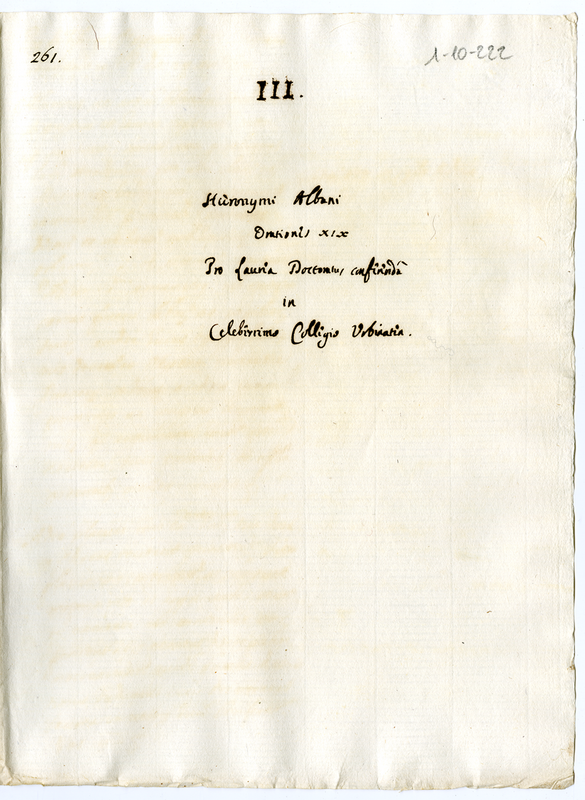 261.
1-10-222
III.
Hieronymi Albani
Orationes XIX
Pro Laurea Doctoratus conferenda
in
Celeberrimo Collegio Urbinate.